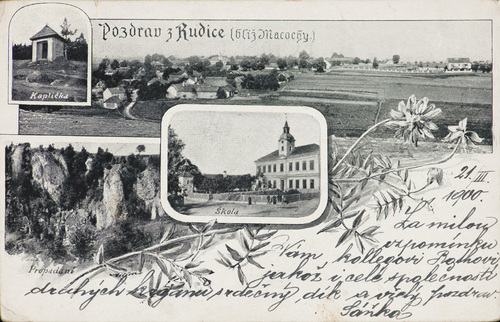 Pozdrav z Rudice (blíž Macochy.)
Kaplička
Škola
Propadání
21.
III.
1900.
Za milou
vzpomínku
Vám, kollegovi
jakož i celé společnosti
drahých srdečný dík a vřelý pozdrav
Sáňka